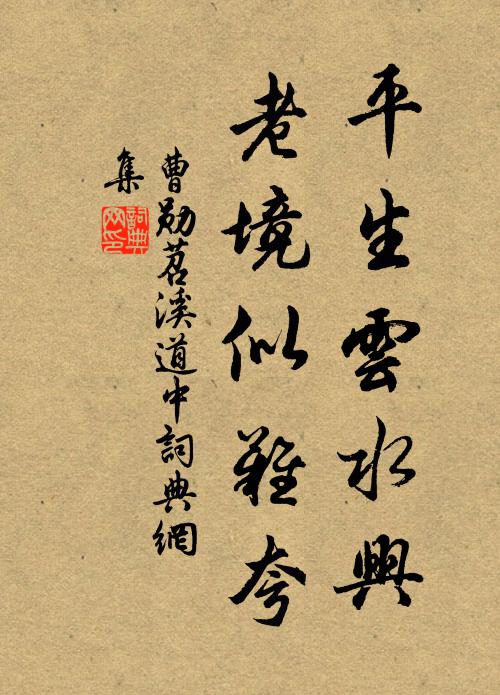 平生雲水興
老境似難夸
曹勛苕溪道中詞典網
集
詞典
网印